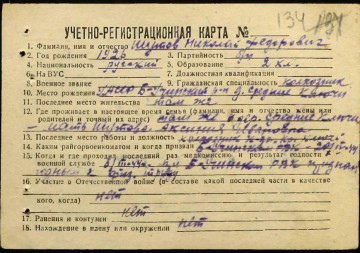 134 191
УЧЕТНО-РЕГИСТРАЦИОННАЯ КАРТА №
1. Фамилия, имя и отчество Шутов Николай Федорович
2. Год рождения 1926 3. Партийность б/п
4. Национальность русский 5. Образование 2 кл.
6. На ВУС 7. Должностная квалификация
8. Военное звание 9. Гражданская специальность колхозник
10. Место рождения Б-Учинский р-н д. Средние Ключи
11. Последнее место жительства там же
12. Где проживает в настоящее время семья (фамилия, имя и отчество жены или
родителей и точный их адрес) там же в д. Средние Ключи -
мать Шутова
13. Последнее место работы и должность
14. Каким райгорвоенкоматом и когда призван Б-Учинский РВК
15. Когда и где проходил последний раз медкомиссию и результат годности к
военной службе Б-Учинский РВК
16. Участие в Отечественной войне (в составе какой последней части в качестве
кого, когда) нет
17. Ранения и контузии нет
18. Нахождение в плену или окружении нет